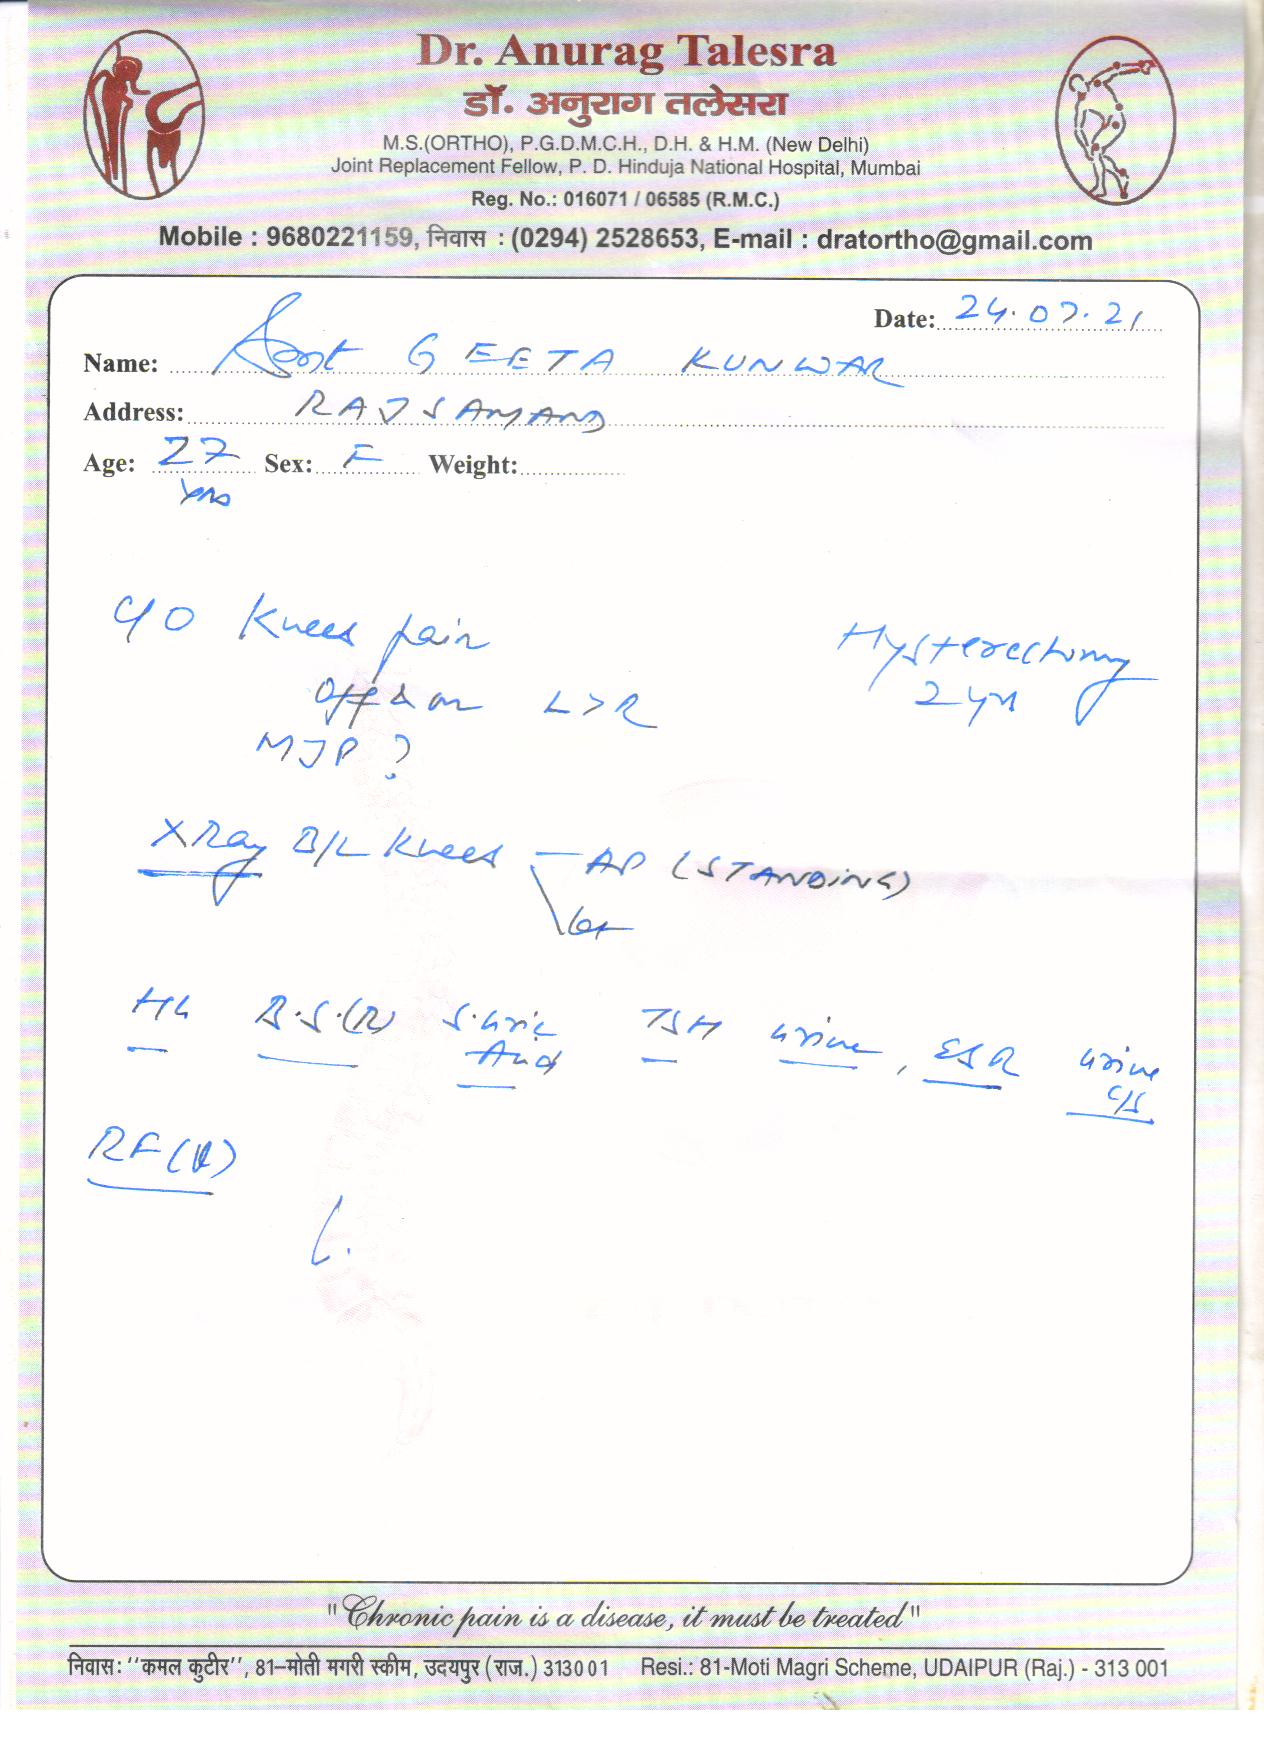 Dr. Anurag Talesra
डॉ. अनुराग तलेसरा
M.S.(ORTHO), P.G.D.M.C.H., D.H. & H.M. (New Delhi)
Joint Replacement Fellow, P. D. Hinduja National Hospital, Mumbai
Reg. No.: 016071 / 06585 (R.M.C.)
Mobile : 9680221159, निवास : (0294) 2528653, E-mail : dratortho@gmail.com
Date: 24.07.21
Name: Smt GEETA KUNWAR
Address: RAJSAMAND
Age: 27 Sex: F Weight:
yrs
C/O Knees pain
Hysterectomy
off & on L>R
2 yrs
MJP ?
XRay B/L Knees — AP (STANDING)
Lat
Hb B.S.(R) S.Uric TSH Urine, ESR Urine
Acid C/S
RF(
"Chronic pain is a disease, it must be treated"
निवास: ''कमल कुटीर'', 81–मोती मगरी स्कीम, उदयपुर (राज.) 313001 Resi.: 81-Moti Magri Scheme, UDAIPUR (Raj.) - 313 001